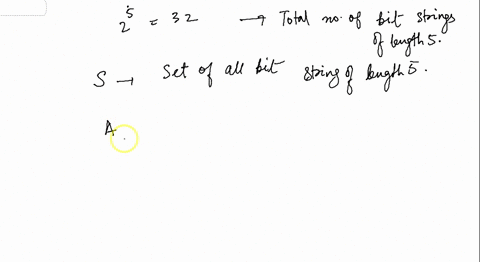 2^5 = 32 → Total no. of bit strings
of length 5.
S → Set of all bit string of length 5.
A